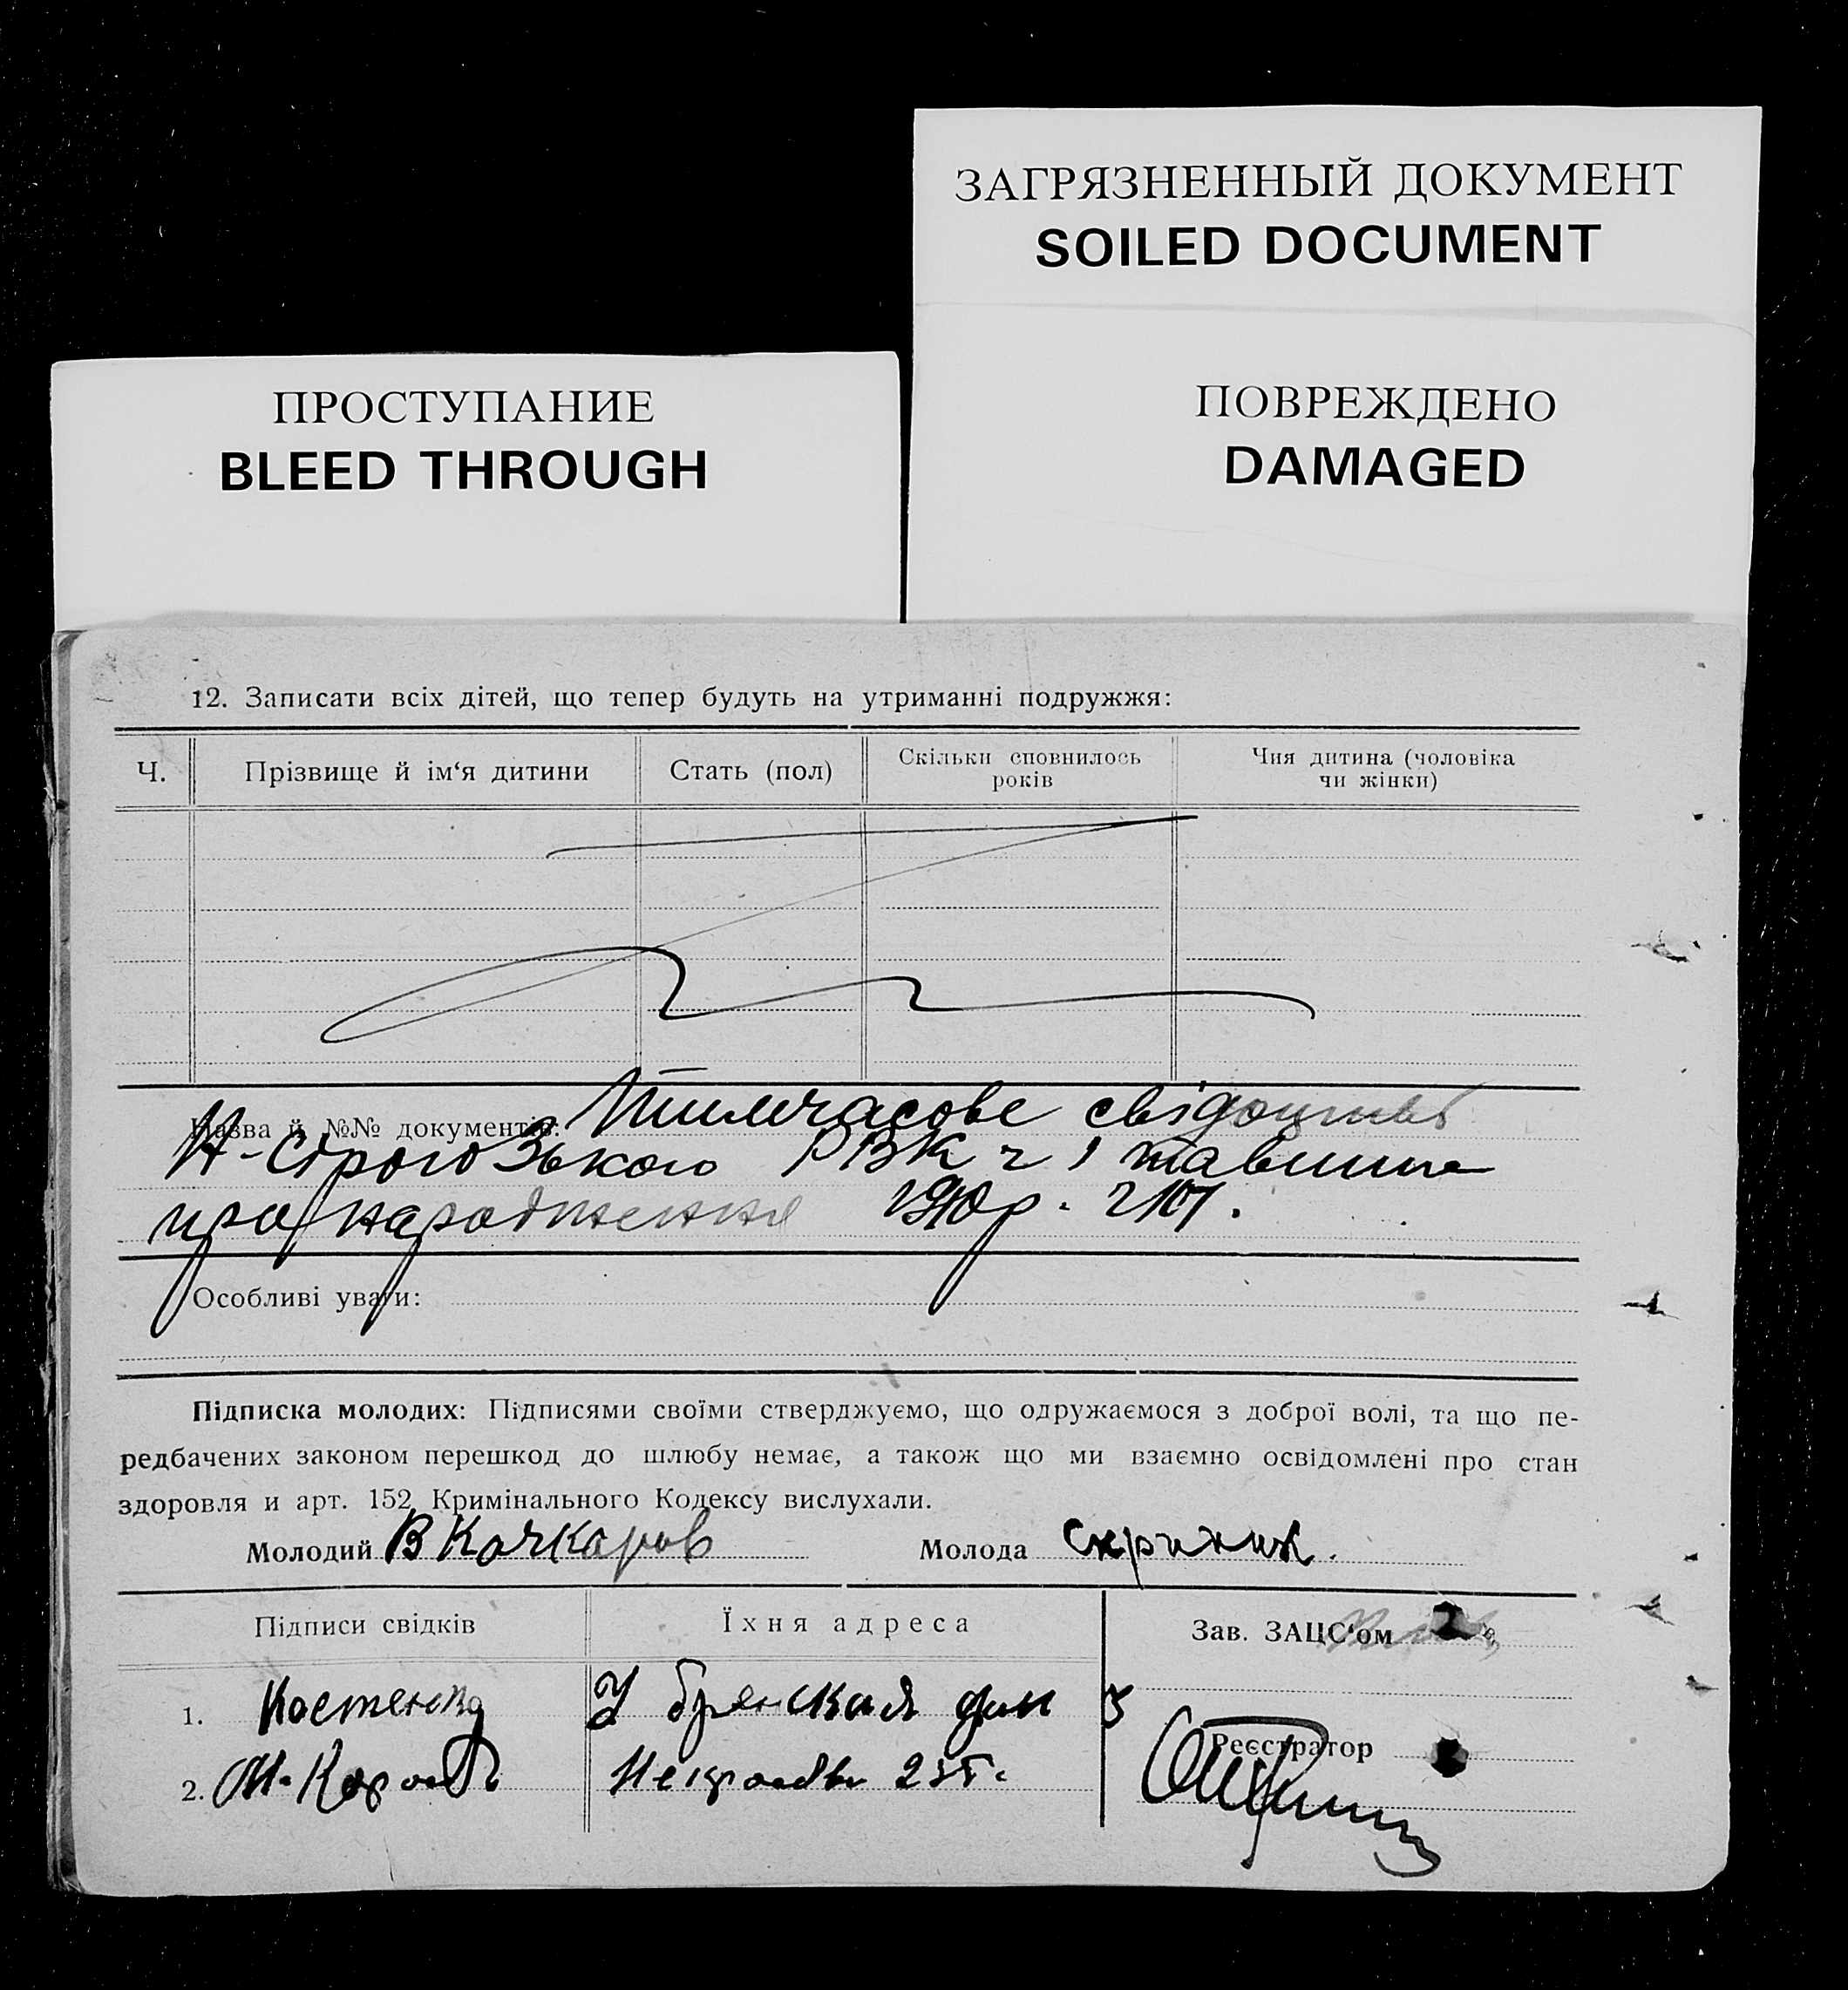 ЗАГРЯЗНЕННЫЙ ДОКУМЕНТ
SOILED DOCUMENT
ПРОСТУПАНИЕ
BLEED THROUGH
ПОВРЕЖДЕНО
DAMAGED
12. Записати всіх дітей, що тепер будуть на утриманні подружжя:
Ч.
Прізвище й ім‘я дитини
Стать (пол)
Скільки сповнилось
років
Чия дитина (чоловіка
чи жінки)
Назва й №№ документів: Тимчасове свідоцтво
Н-Сірогозького РВК
про народження 1940р.
Особливі уваги:
Підписка молодих: Підписями своїми стверджуємо, що одружаємося з доброї волі, та що пе-
редбачених законом перешкод до шлюбу немає, а також що ми взаємно освідомлені про стан
здоровля и арт. 152 Кримінального Кодексу вислухали.
Молодий В Качкаров
Молода Скриник.
Підписи свідків
Їхня адреса
Зав. ЗАЦС‘ом
1. Костенко
У брянская дом 3
Реєстратор
2.